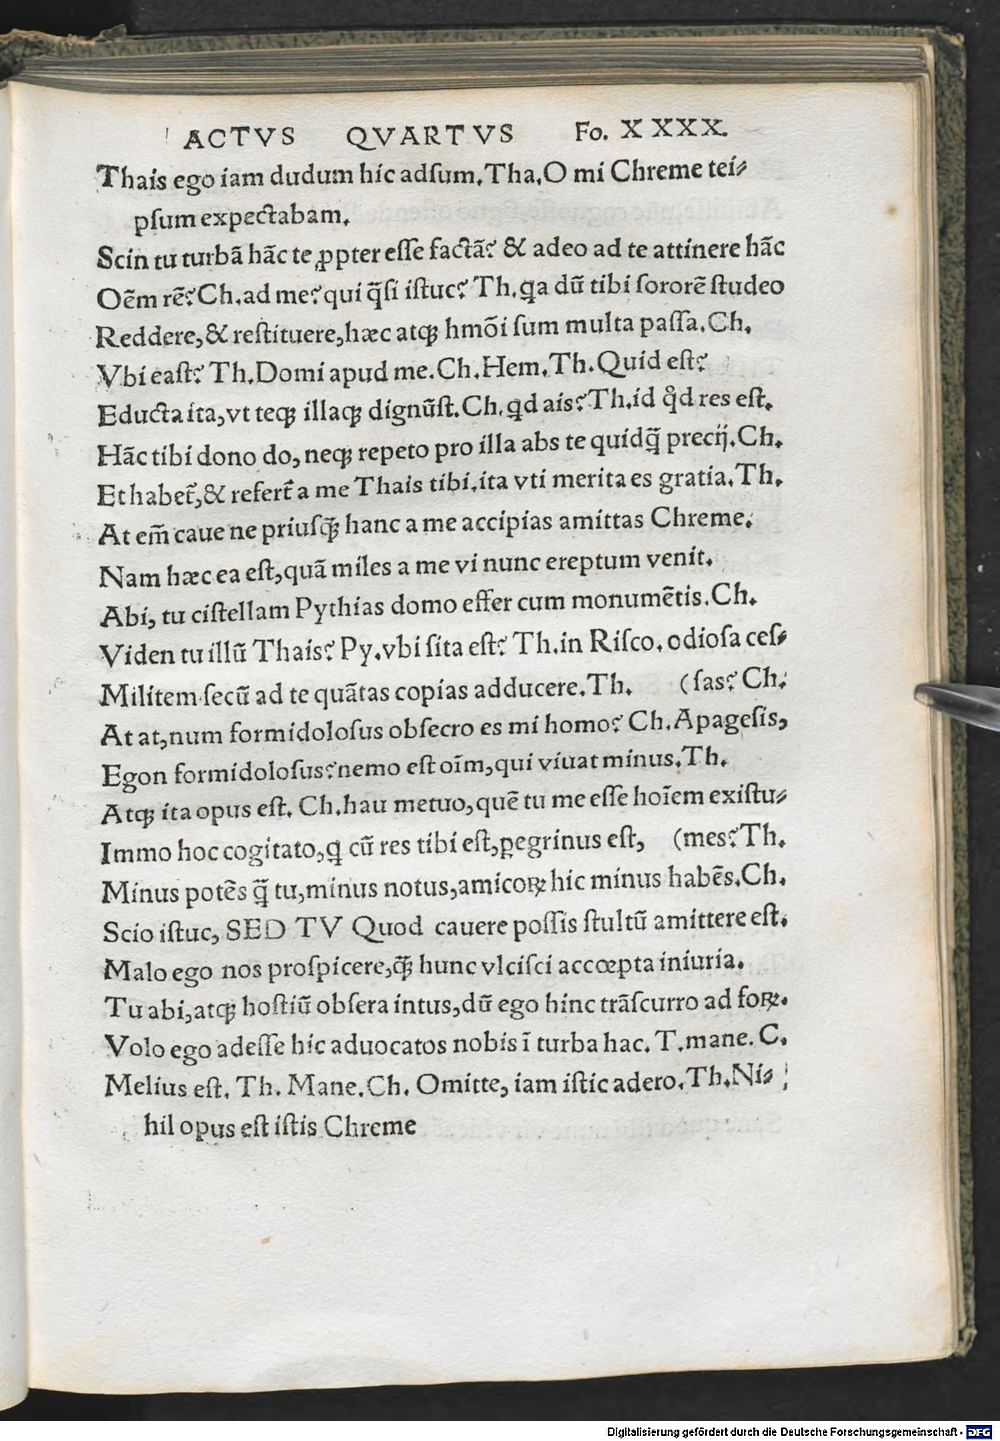 ACTVS QVARTVS Fo. XXXX.
Thais ego iam dudum hic adſum. Tha. O mi Chreme tei⸗
pſum expectabam.
Scin tu turbã hãc te ꝓpter eſſe factã? & adeo ad te attinere hãc
Oẽm rẽ? Ch. ad me? qui q̃ſi iſtuc? Th. qa dũ tibi ſororẽ ſtudeo
Reddere, & reſtituere, hæc atqꝫ hmõi ſum multa paſſa. Ch.
Vbi eaſt? Th. Domi apud me. Ch. Hem. Th. Quid eſt?
Educta ita, vt teqꝫ illaqꝫ dignũſt. Ch. qd ais? Th. id qd̓ res eſt.
Hãc tibi dono do, neqꝫ repeto pro illa abs te quidq̃ precij. Ch.
Et habet̃, & refert̃ a me Thais tibi, ita vti merita es gratia. Th.
At em̃ caue ne priuſq̃ hanc a me accipias amittas Chreme.
Nam hæc ea eſt, quã miles a me vi nunc ereptum venit.
Abi, tu ciſtellam Pythias domo effer cum monumẽtis. Ch.
Viden tu illũ Thais? Py. vbi ſita eſt? Th. in Riſco, odioſa ceſ⸗
Militem ſecũ ad te quãtas copias adducere. Th. (ſas? Ch.
At at, num formidoloſus obſecro es mi homo? Ch. Apageſis,
Egon formidoloſus? nemo eſt oĩm, qui viuat minus. Th.
Atqꝫ ita opus eſt. Ch. hau metuo, quẽ tu me eſſe hoĩem exiſtu⸗
Immo hoc cogitato, q cũ res tibi eſt, ꝑegrinus eſt, (mes? Th.
Minus potẽs q̃ tu, minus notus, amicoꝝ hic minus habẽs. Ch.
Scio iſtuc, SED TV Quod cauere poſſis ſtultũ amittere eſt.
Malo ego nos proſpicere, q̃ hunc vlciſci accœpta iniuria.
Tu abi, atqꝫ hoſtiũ obſera intus, dũ ego hinc trãſcurro ad foꝝ.
Volo ego adeſſe hic aduocatos nobis ĩ turba hac. T. mane. C.
Melius eſt. Th. Mane. Ch. Omitte, iam iſtic adero. Th. Ni⸗
hil opus eſt iſtis Chreme
Digitalisierung gefördert durch die Deutsche Forschungsgemeinschaft - DFG